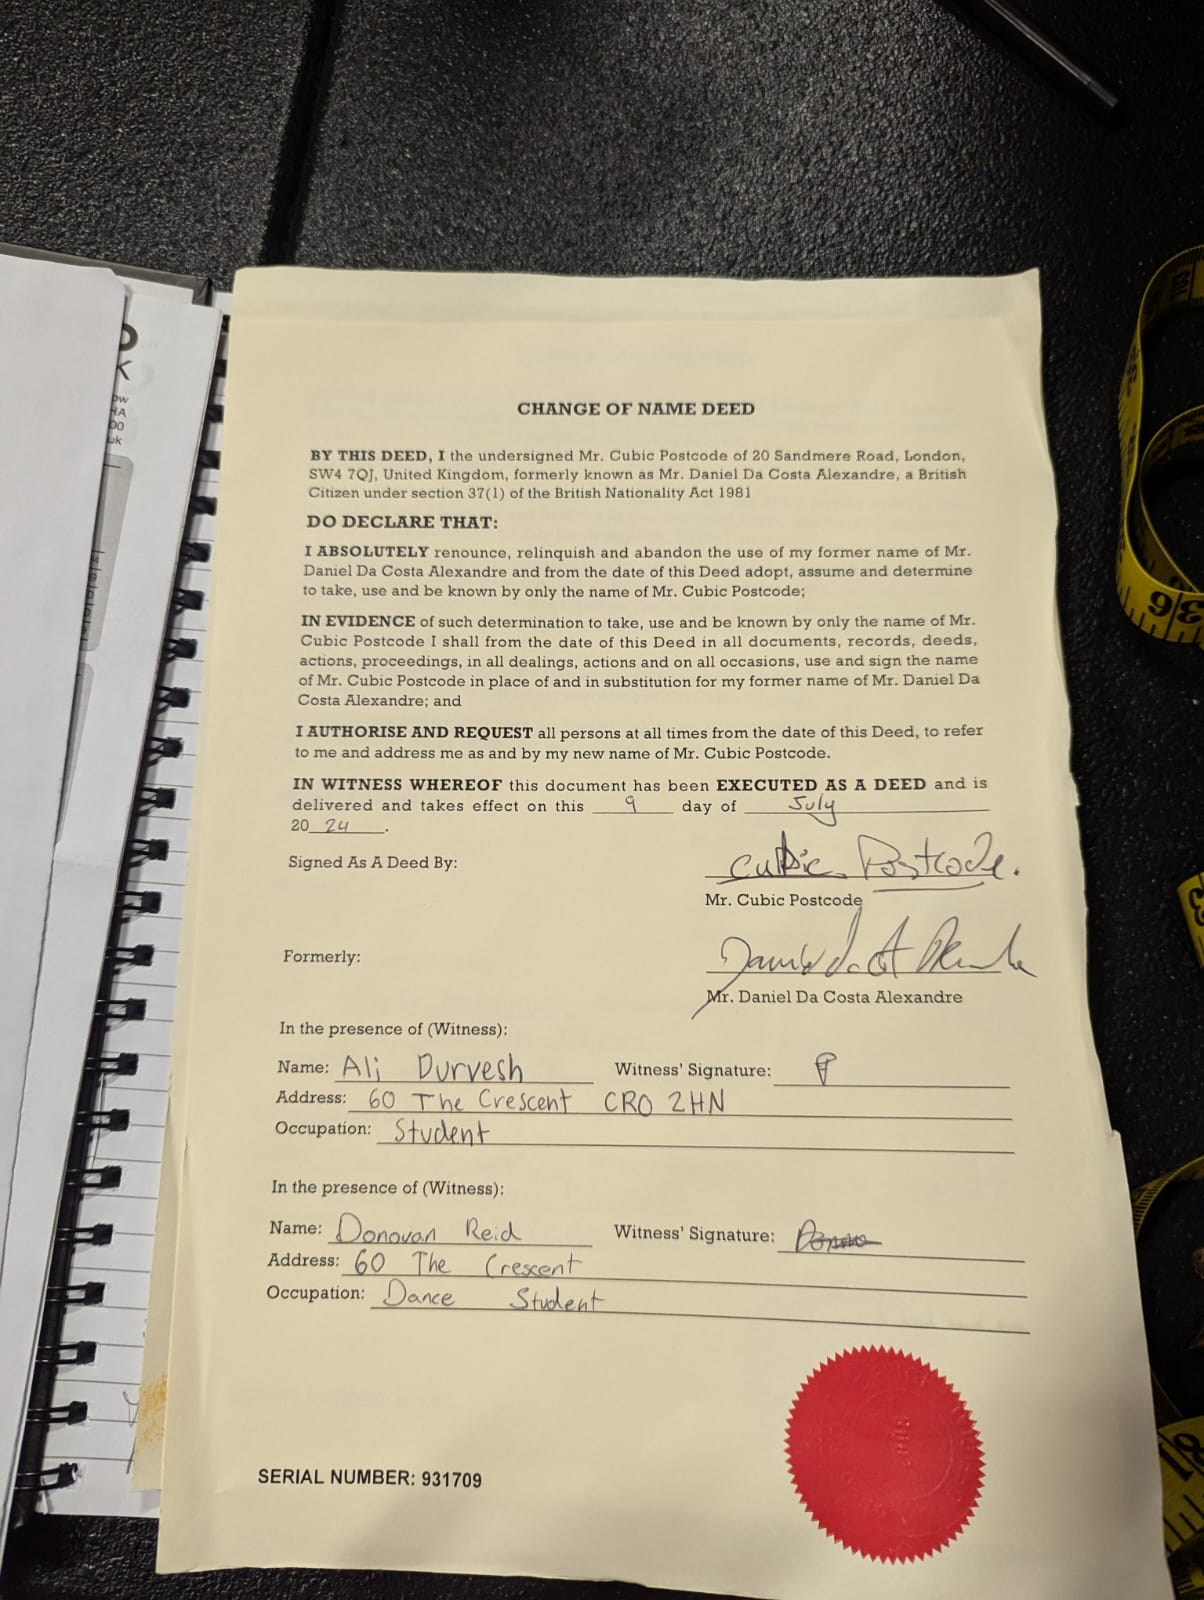 CHANGE OF NAME DEED
BY THIS DEED, I the undersigned Mr. Cubic Postcode of 20 Sandmere Road, London,
SW4 7QJ, United Kingdom, formerly known as Mr. Daniel Da Costa Alexandre, a British
Citizen under section 37(1) of the British Nationality Act 1981
DO DECLARE THAT:
I ABSOLUTELY renounce, relinquish and abandon the use of my former name of Mr.
Daniel Da Costa Alexandre and from the date of this Deed adopt, assume and determine
to take, use and be known by only the name of Mr. Cubic Postcode;
IN EVIDENCE of such determination to take, use and be known by only the name of Mr.
Cubic Postcode I shall from the date of this Deed in all documents, records, deeds,
actions, proceedings, in all dealings, actions and on all occasions, use and sign the name
of Mr. Cubic Postcode in place of and in substitution for my former name of Mr. Daniel Da
Costa Alexandre; and
I AUTHORISE AND REQUEST all persons at all times from the date of this Deed, to refer
to me and address me as and by my new name of Mr. Cubic Postcode.
IN WITNESS WHEREOF this document has been EXECUTED AS A DEED and is
delivered and takes effect on this 9 day of July
20 24 .
Signed As A Deed By: Cubic Postcode.
Mr. Cubic Postcode
Formerly:
Mr. Daniel Da Costa Alexandre
In the presence of (Witness):
Name: Ali Durvesh Witness' Signature:
Address: 60 The Crescent CR0 2HN
Occupation: Student
In the presence of (Witness):
Name: Donovan Reid Witness' Signature:
Address: 60 The Crescent
Occupation: Dance Student
SERIAL NUMBER: 931709